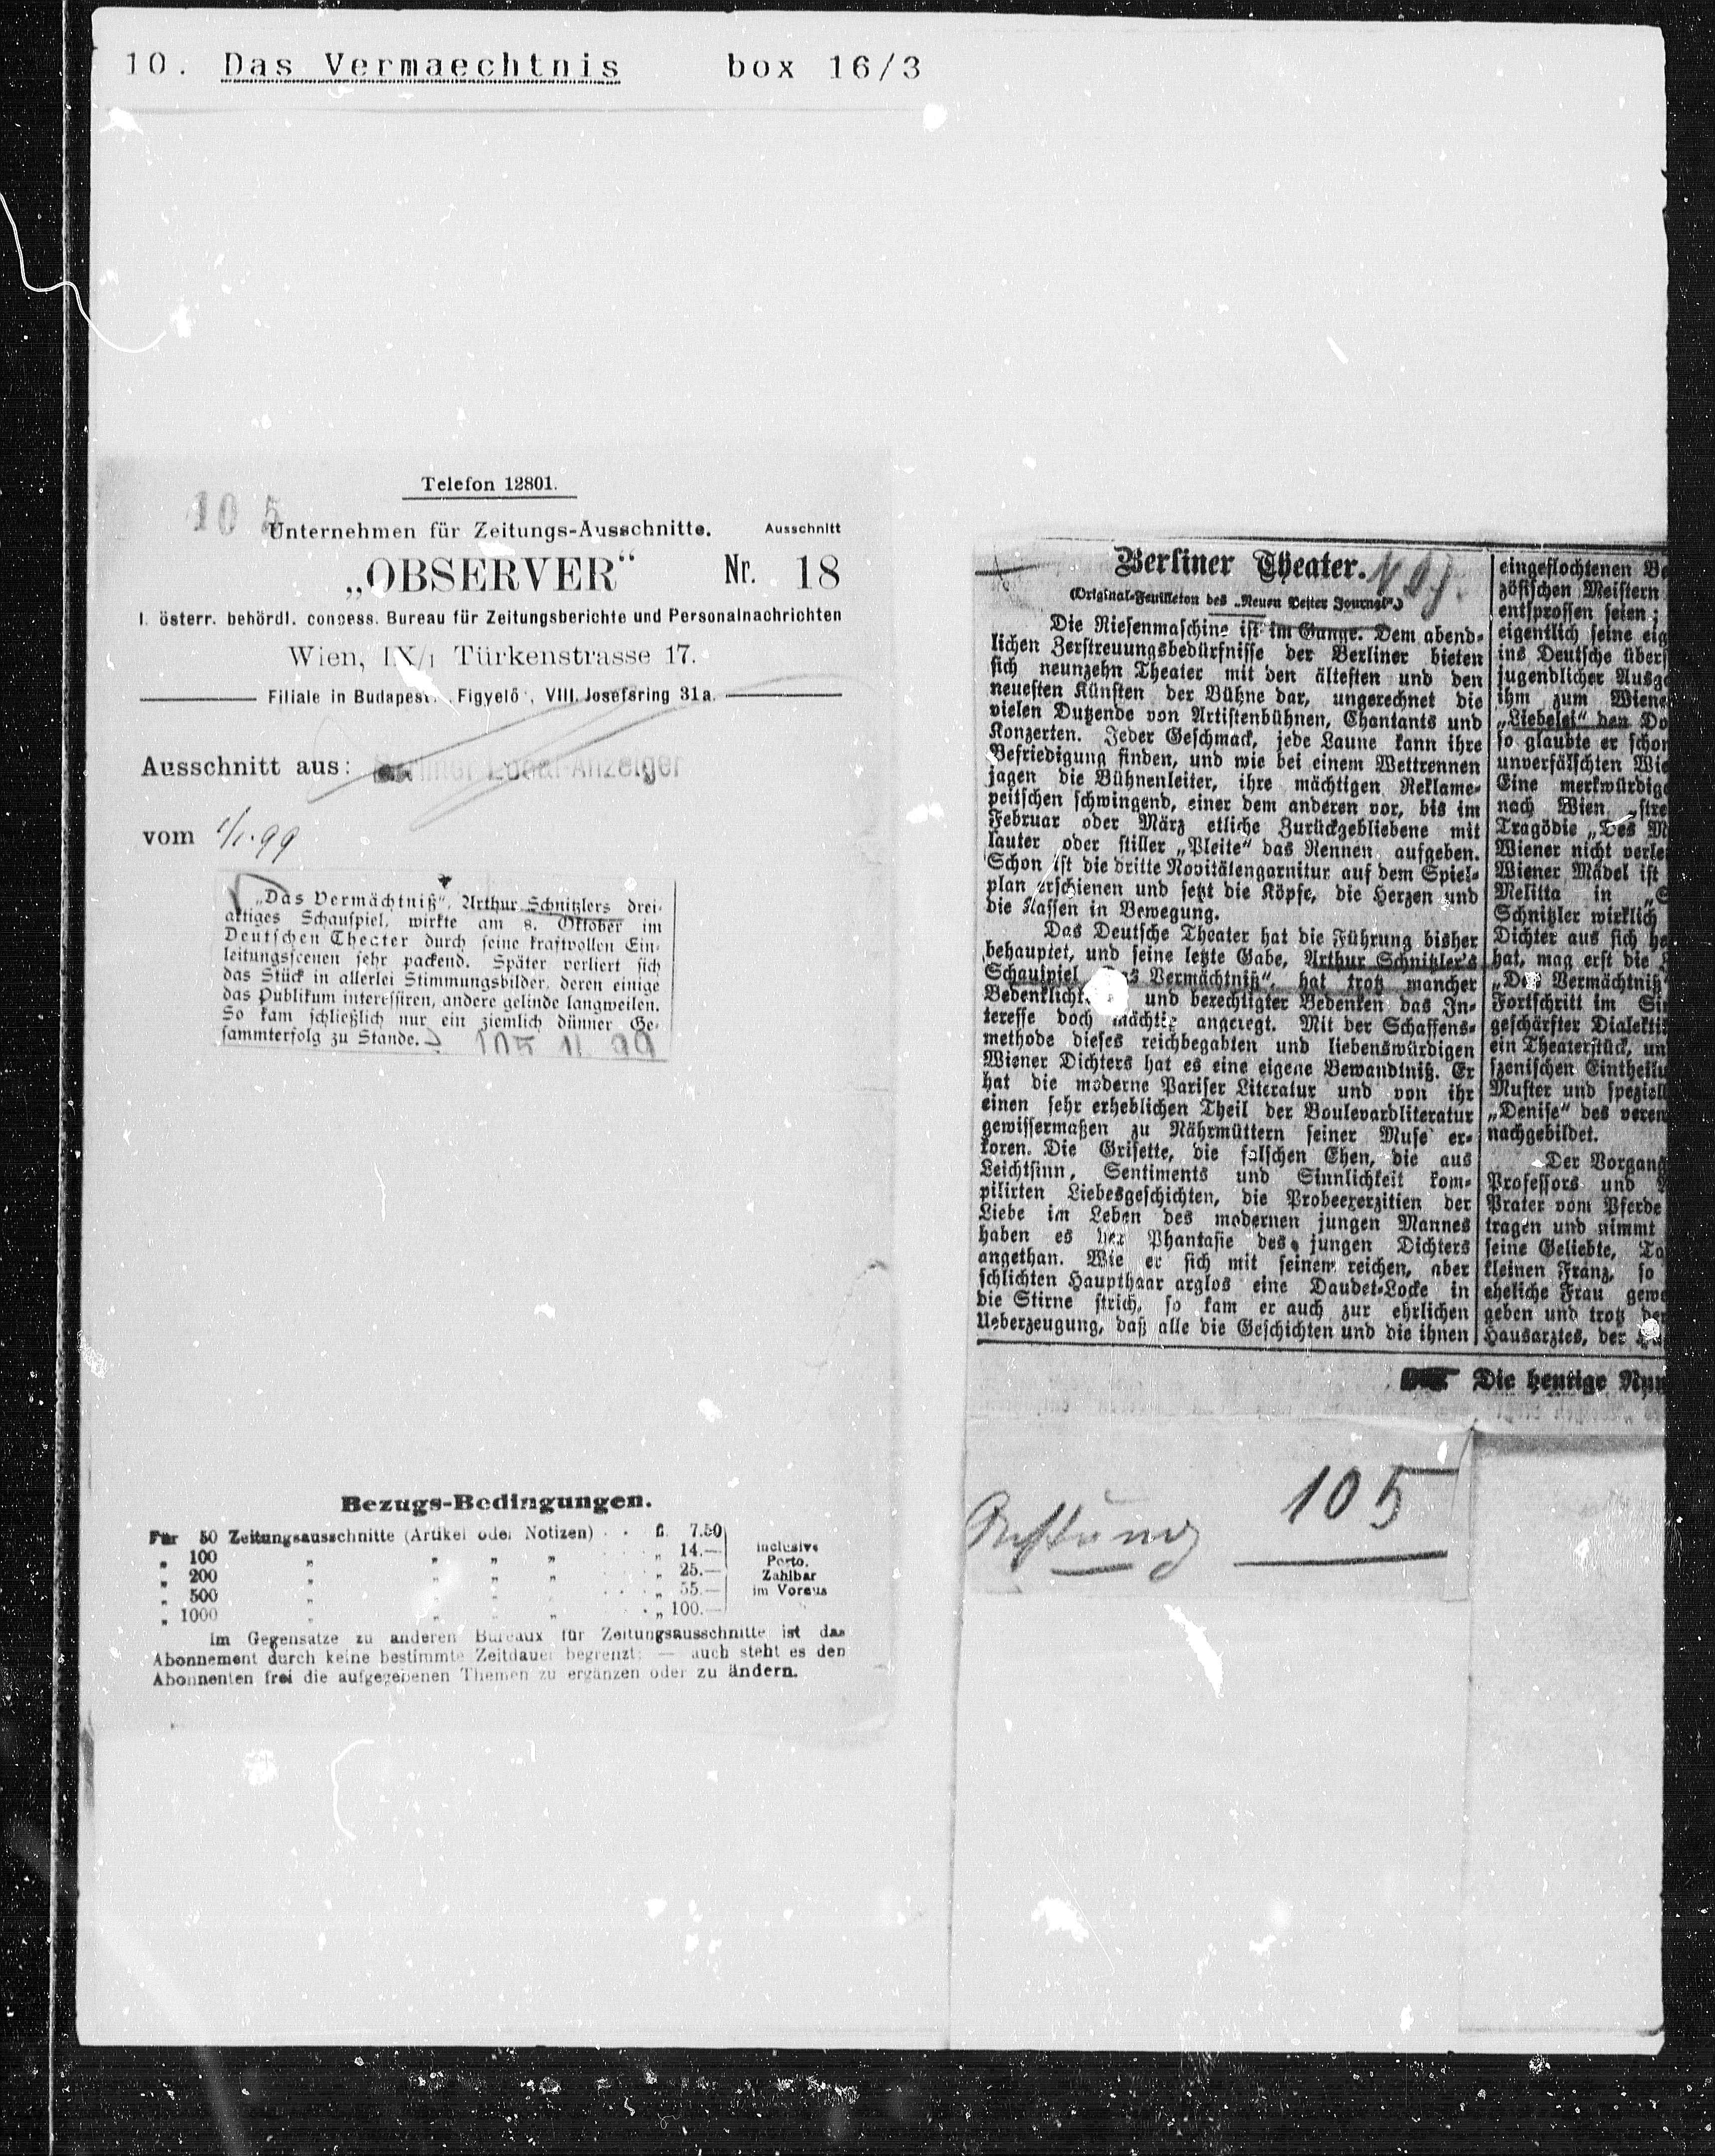 10. Das Vermaechtnis box 16/3
Telefon 12801.
105
Unternehmen für Zeitungs-Ausschnitte. Ausschnitt
„OBSERVER“ Nr. 18
I. österr. behördl. concess. Bureau für Zeitungsberichte und Personalnachrichten
Wien, IX/1 Türkenstrasse 17.
Filiale in Budapest: „Figyelő“, VIII. Josefsring 31a.
Ausschnitt aus: Berliner Local-Anzeiger
vom 1/1.99
„Das Vermächtniß“, Arthur Schnitzlers drei-
aktiges Schauspiel, wirkte am 8. Oktober im
Deutschen Theater durch seine kraftvollen Ein-
leitungsscenen sehr packend. Später verliert sich
das Stück in allerlei Stimmungsbilder, deren einige
das Publikum interessiren, andere gelinde langweilen.
So kam schließlich nur ein ziemlich dünner Ge-
sammterfolg zu Stande.
Bezugs-Bedingungen.
Für 50 Zeitungsausschnitte (Artikel oder Notizen) . . fl. 7.50
„ 100 „ „ „ „ „ 14.— inclusive
„ 200 „ „ „ „ „ 25.— Porto.
„ 500 „ „ „ „ „ 55.— Zahlbar
„ 1000 „ „ „ „ „ 100.— im Voraus
Im Gegensatze zu anderen Bureaux für Zeitungsausschnitte ist das
Abonnement durch keine bestimmte Zeitdauer begrenzt; — auch steht es den
Abonnenten frei die aufgegebenen Themen zu ergänzen oder zu ändern.
Berliner Theater.
(Original-Feuilleton des „Neuen Pester Journal“.)
Die Riesenmaschine ist im Gange. Dem abend-
lichen Zerstreuungsbedürfnisse der Berliner bieten
sich neunzehn Theater mit den ältesten und den
neuesten Künsten der Bühne dar, ungerechnet die
vielen Dutzende von Artistenbühnen, Chantants und
Konzerten. Jeder Geschmack, jede Laune kann ihre
Befriedigung finden, und wie bei einem Wettrennen
jagen die Bühnenleiter, ihre mächtigen Reklame-
peitschen schwingend, einer dem anderen vor, bis im
Februar oder März etliche Zurückgebliebene mit
lauter oder stiller „Pleite“ das Rennen aufgeben.
Schon ist die dritte Novitätengarnitur auf dem Spiel-
plan erschienen und setzt die Köpfe, die Herzen und
die Kassen in Bewegung.
Das Deutsche Theater hat die Führung bisher
behauptet, und seine letzte Gabe, Arthur Schnitzler's
Schauspiel Vermächtniß“, hat trotz mancher
Bedenklichk und berechtigter Bedenken das In-
teresse doch mächtig angeregt. Mit der Schaffens-
methode dieses reichbegabten und liebenswürdigen
Wiener Dichters hat es eine eigene Bewandtniß. Er
hat die moderne Pariser Literatur und von ihr
einen sehr erheblichen Theil der Boulevardliteratur
gewissermaßen zu Nährmüttern seiner Muse er-
koren. Die Grisette, die falschen Ehen, die aus
Leichtsinn, Sentiments und Sinnlichkeit kom-
pilirten Liebesgeschichten, die Probeexerzitien der
Liebe im Leben des modernen jungen Mannes
haben es der Phantasie des jungen Dichters
angethan. Wie er sich mit seinem reichen, aber
schlichten Haupthaar arglos eine Daudet-Locke in
die Stirne strich, so kam er auch zur ehrlichen
Ueberzeugung, daß alle die Geschichten und die ihnen
eingeflochtenen Be
zösischen Meistern
entsprossen seien;
eigentlich seine eig
ins Deutsche übers
jugendlicher Ausge
ihm zum Wiene
„Liebelei“ den Do
so glaubte er schon
unverfälschten Wie
Eine merkwürdige
nach Wien „stre
Tragödie „Des M
Wiener nicht verle
Wiener Mädel ist
Melitta in „S
Schnitzler wirklich
Dichter aus sich he
hat, mag erst die
„Das Vermächtniß“
Fortschritt im Sin
geschärfter Dialekti
ein Theaterstück, un
szenischen Eintheilu
Muster und speziell
„Denise“ des veren
nachgebildet.
Der Vorgang
Professors und
Prater vom Pferde
tragen und nimmt
seine Geliebte, To
kleinen Franz, so
eheliche Frau gewe
geben und trotz der
Hausarztes, der
Die heutige Nu
105